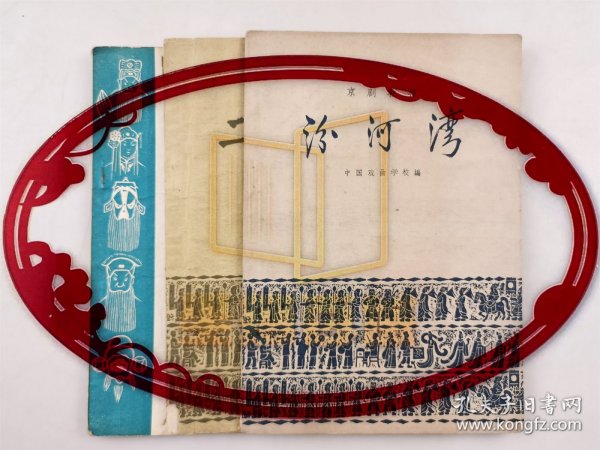 京剧
二
汾河湾
中国戏曲学校编
孔夫子旧书网
www.kongfz.com